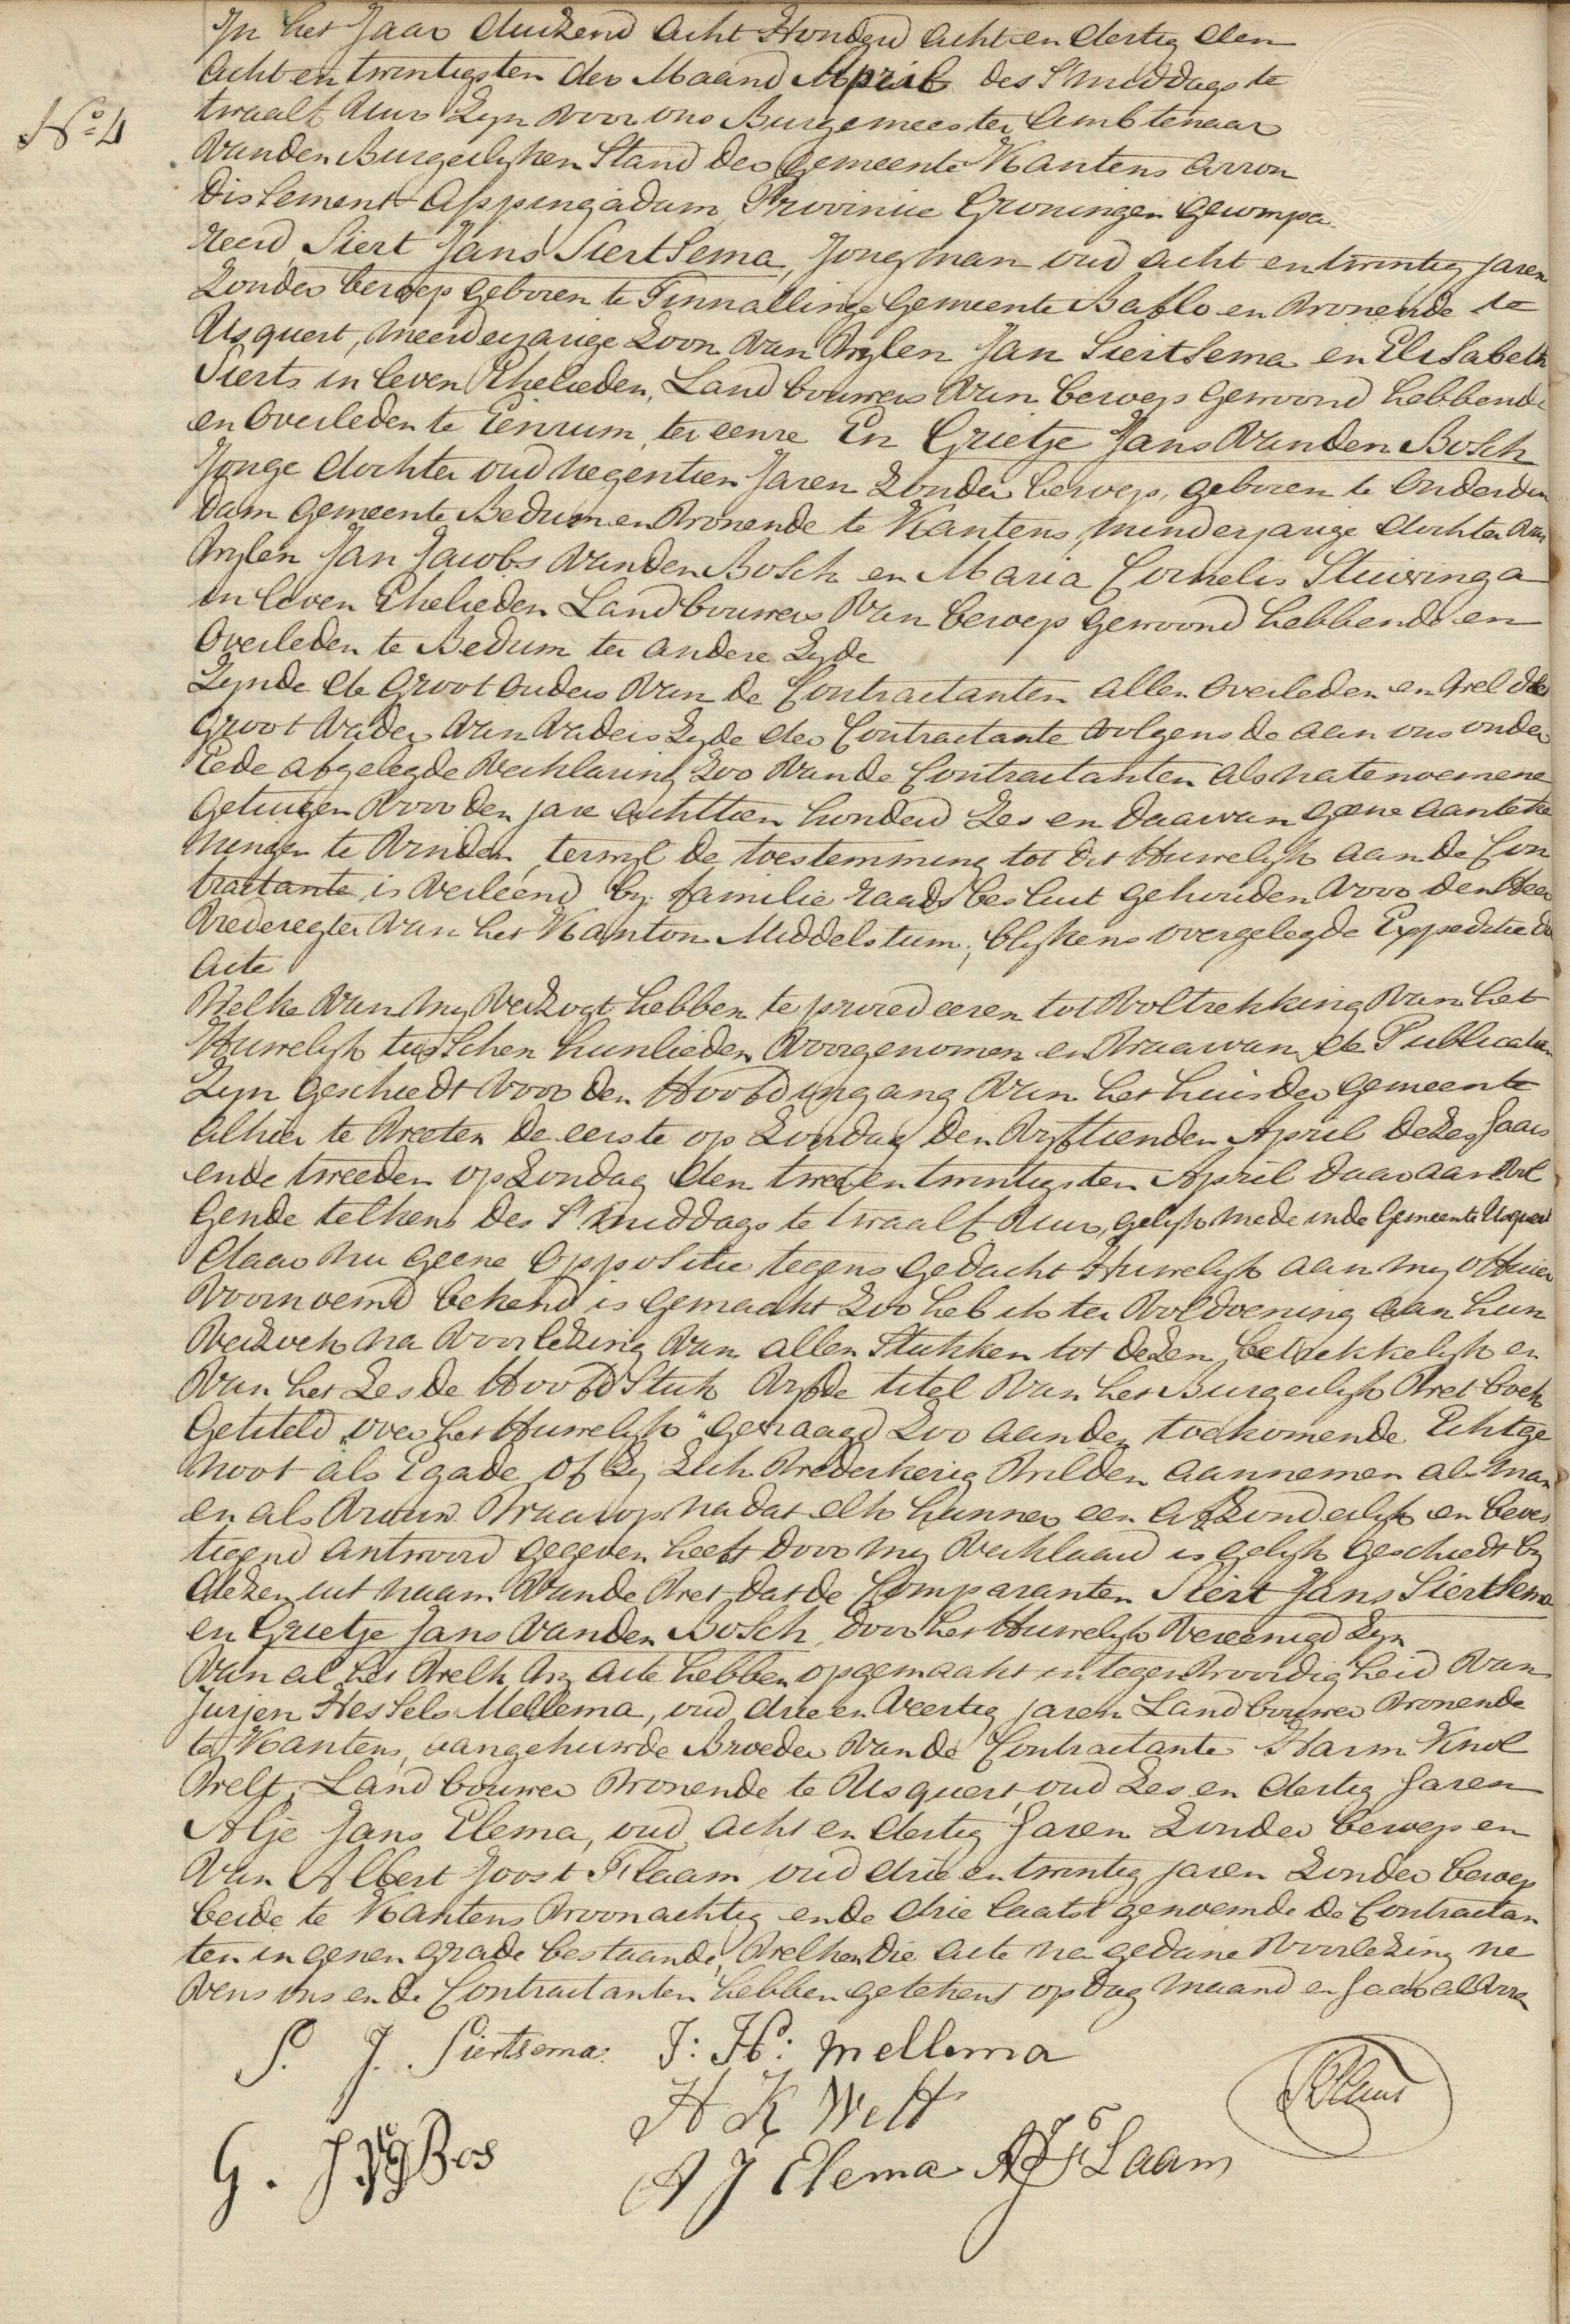 In het Jaar duizend acht Honderd acht en dertig den
acht en twintigsten der Maand April des S'middags te
twaalf uur Zyn voor ons Burgemeester Ambtenaar
No 4
van den Burgerlyken Stand der Gemeente Kantens Arron
dissement Appingadam, Provincie Groningen Gecompa
reerd Siert Jans Siertsema, Jongman oud acht en twintig Jaren
Zonder beroep geboren te Tinnallinge Gemeente Baflo en wonende te
Usquert, meerderjarige Zoon van wylen Jan Siertsema en Elisabeth
Sierts in leven Ehelieden, Landbouwers van beroep gewoond hebbende
en Overleden te Eenrum, ter eenre En Grietje Jans van den Bosch
Jonge dochter oud negentien Jaren Zonder beroep, geboren te Onderden
dam Gemeente Bedum en wonende te Kantens, minderjarige dochter van
wylen Jan Jacobs van den Bosch en Maria Cornelis Stuivinga
in leven Ehelieden Landbouwers van beroep gewoond hebbende en
Overleden te Bedum ter andere Zyde
Zynde de Groot Ouders van de Contractanten allen Overleden en wel de
Groot Vader van Vaders Zyde der Contractante volgens de aan ons onder
Eede afgelegde Verklaring Zoo van de Contractanten als na te noemene
getuigen voor den jare achttien honderd Zes en daarvan geene aanteke
ningen te vinden, terwyl de toestemming tot dit Huwelyk aan de Con
tractante is verleend by familie raads besluit gehouden voor den Heer
Vrederegter van het Kanton Middelstum, blykens overgelegde Expeditie
Acte
Welke van my verzogt hebben te procedeeren tot voltrekking van het
Huwelyk tusschen hunlieden voorgenomen en waarvan de Publicatien
Zyn geschiedt voor den Hoofdingang van het huis der Gemeente
alhier te weeten de eerste op Zondag den vyftienden April dezes Jaars
en de tweeden op Zondag den twee en twintigsten April daar aan vol
gende telkens des S'middags te twaalf uur, gelyk mede in de Gemeente Usquert
daar nu geene oppositie tegens gedacht Huwelyk aan my officier
voornoemd bekend is gemaakt Zoo heb ik ter voldoening aan hun
verzoek na voorlezing van allen Stukken tot dezen betrekkelyk en
van het Zesde Hoofd Stuk vyfde titel van het Burgerlyk Wetboek
getiteld "over het Huwelyk" gevraagd Zoo aan den toekomende Echtge
noot als Egade of Zy Zich wederkerig wilden aannemen als man
en als vrouw. Waarop na dat elk hunner een afzonderlyk en beves
tigend antwoord gegeven heeft door my verklaard is gelyk geschiedt by
dezen uit naam van de Wet dat de Comparanten Siert Jans Siertsema
en Grietje Jans van den Bosch door het Huwelyk vereenigd Zyn
Van al het welk wy acte hebben opgemaakt in tegenwoordigheid van
Jurjen Hessels Mellema, oud drie en veertig jaren Landbouwer wonende
te Kantens, aangehuwde Broeder van de Contractante Harm Knol
Welt, Landbouwer wonende te Usquert, oud Zes en dertig Jaren
Alje Jans Elema, oud acht en dertig Jaren Zonder beroep en
van Albert Joost Slaam oud drie en twintig jaren Zonder beroep
beide te Kantens woonachtig en de drie laatst genoemde de Contractan
ten in genen grade bestaande, welken die acte na gedane voorlezing ne
vens ons en de Contractanten hebben getekent op dag maand en Jaar als voren
S. J. Siertsema. J: H: Mellema
H K Welt
G. J Bos
A J Elema A J Slaam